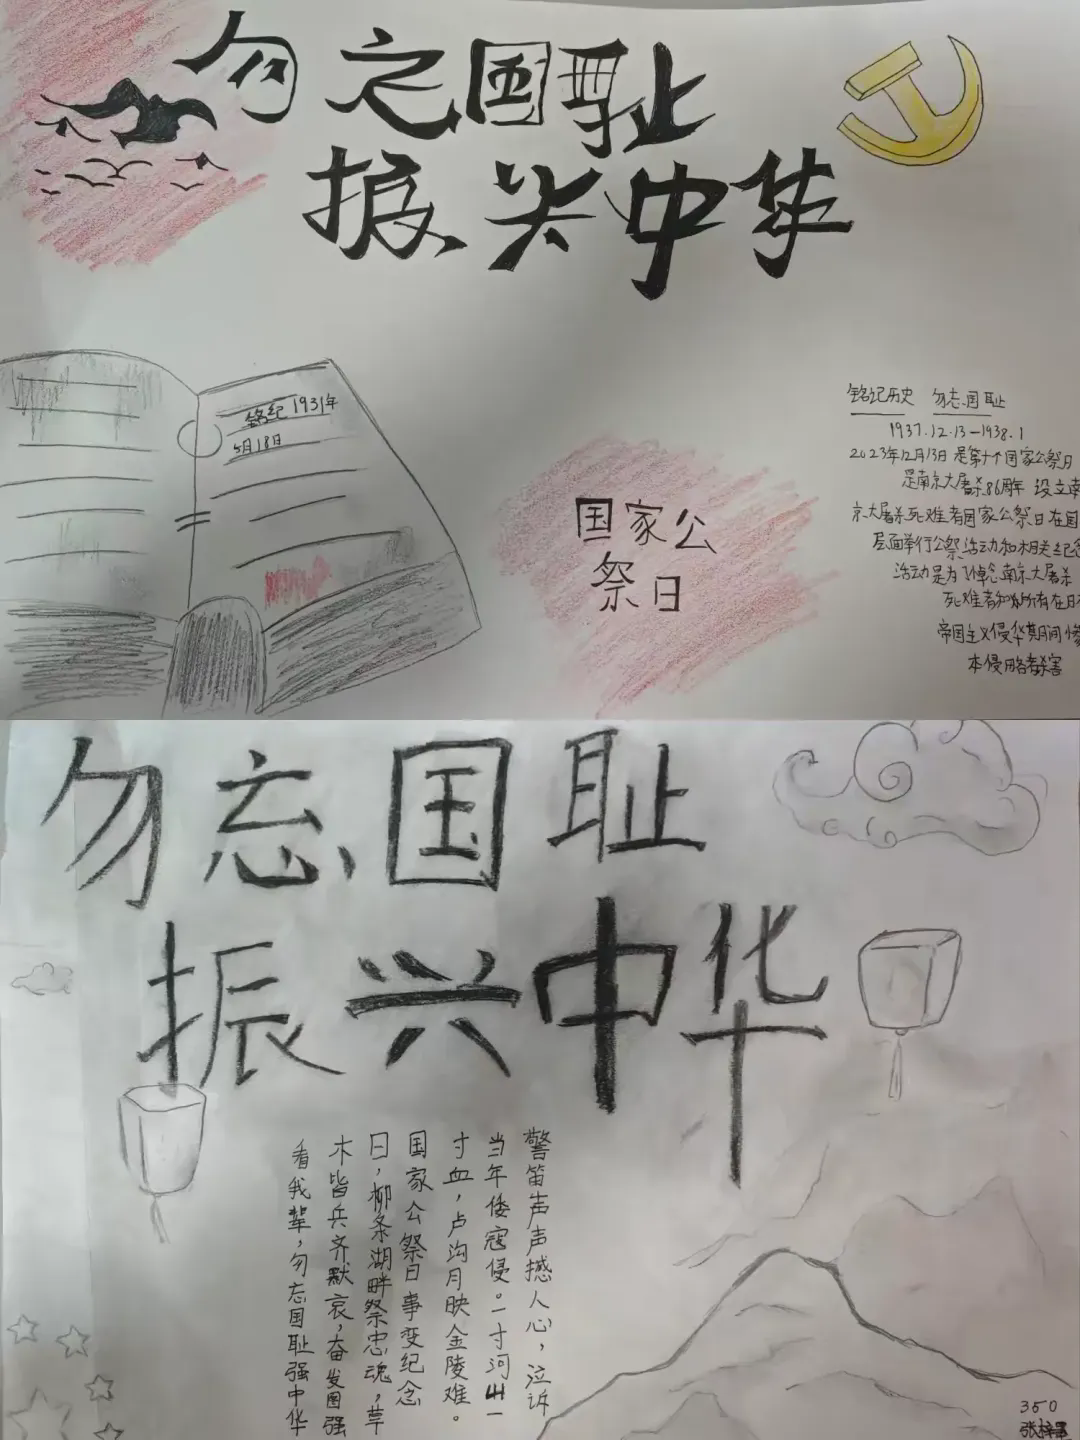 勿忘国耻
振兴中华
铭纪1931年
9月18日
国家公
祭日
铭记历史 勿忘国耻
1937.12.13—1938.1
2023年12月13日是第十个国家公祭日
是南京大屠杀86周年 设立南
京大屠杀死难者国家公祭日在国
层面举行公祭活动和相关纪念
活动是为了悼念南京大屠杀
死难者和所有在日本
帝国主义侵华期间惨
本侵略者杀害
勿忘国耻
振兴中华
警笛声声撼人心，泣诉
当年倭寇侵。一寸河山一
寸血，卢沟月映金陵难。
国家公祭日事变纪念
日，柳条湖畔祭忠魂，草
木皆兵齐默哀，奋发图强
看我辈，勿忘国耻强中华
350
张梓